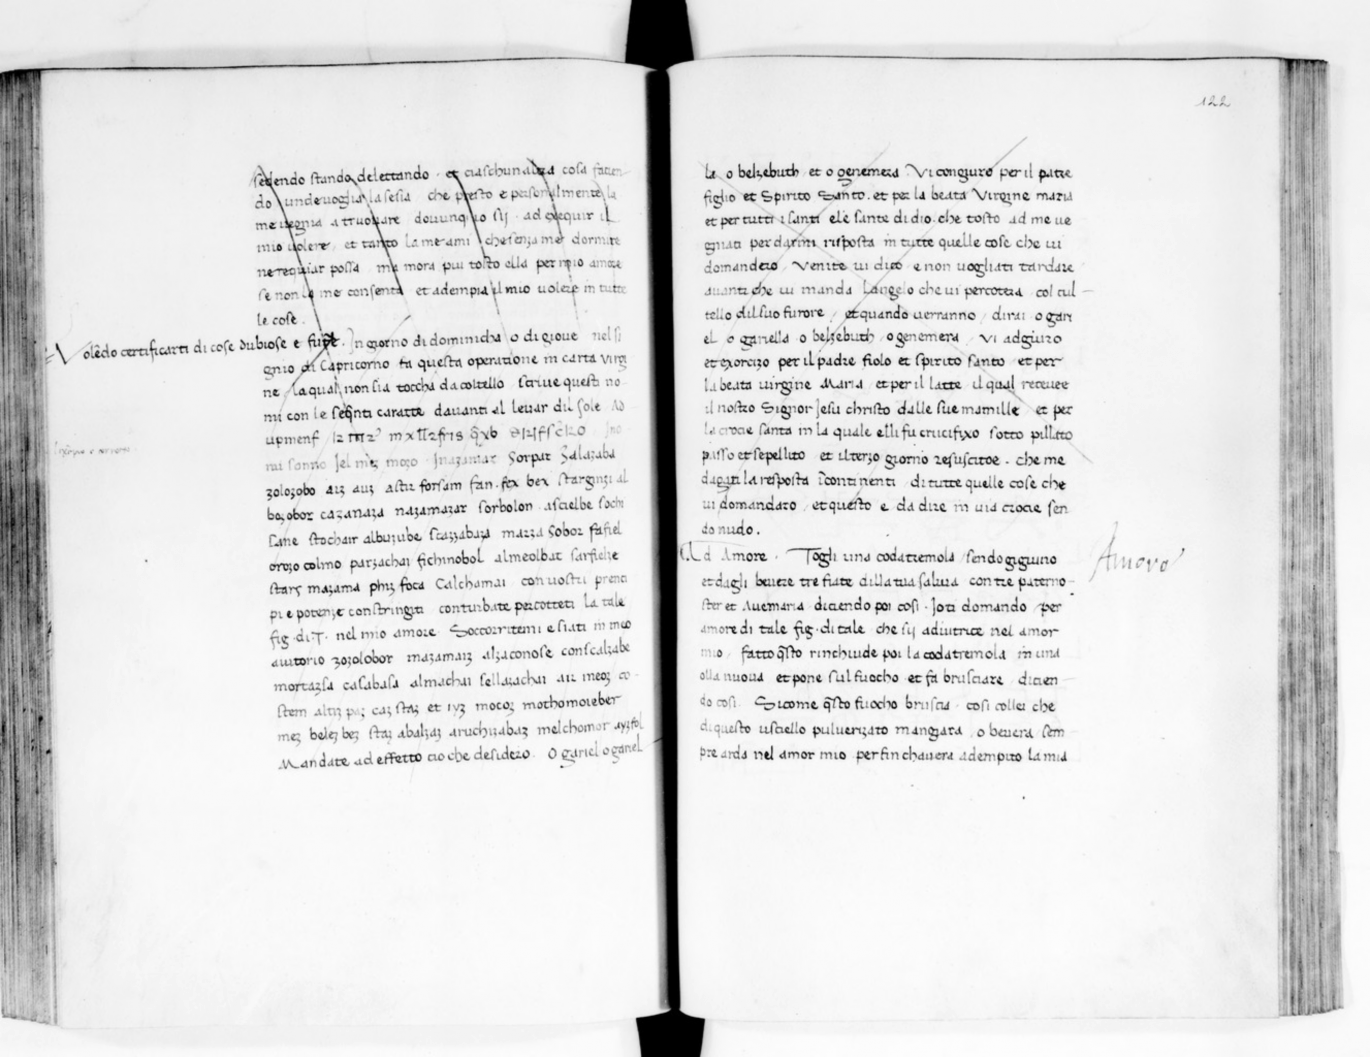 sedendo stando delettando · et ciaschunaltra cosa facien-
do undevoglia la sesia che presto e personalmente la
me vegnia a truovare dovunqu io sij · ad exequir il
mio volere, et tanto la me ami che senza me dormire
ne requiar possa ma mora piu tosto ella per mio amore
se non a me consenta et adempia il mio volere in tutte
le cose .
Volẽdo certificarti di cose dubiose e furte. In giorno di dominicha o di giove nel si
gnio di Capricorno fa questa operatione in carta virgi
ne, la qual non sia toccha da coltello, scrive questi no-
mi con le seq̃nti caratte davanti al levar dil sole
mi sonno Jel mez mozo Sorpar Zalazaba
zolozobo aiz auz astir forsam fan . fex bex starginzi al
bozobor cazanaza nazamazar sorbolon . ascielbe sochi
sane stochair alburube scazzabaza mazza Sobor fafiel
orozo colmo parzachai fichinobol almeolbat sarfiehe
starz mazama phiz foca Calchamai con vostri prenci
pi e potenze constringiti conturbate percotteti la tale
fig . di . T . nel mio amore . Soccorritemi e siati in meo
avitorio zozolobor mazamaiz alzaconose conscalzabe
mortazsa casabasa almachai sellazachai aiz meoz co-
stem altiz paz caz staz et iyz mocoz mothomoieber
mez belez bez staz abalzaz aruchizabaz melchomor ayzfol
Mandate ad effetto cio che desidezo . O gariel o ganel
122
la o belzebuth et o genemeza Vi congiuro per il patre
figlio et Spirito Santo . et per la beata Virgine maria
et per tutti i santi et le sante di dio . che tosto ad me ve
gniati per darmi risposta in tutte quelle cose che vi
domandero, Venite vi dico e non vogliati tardare
avanti che vi manda Langelo che vi percotera col cul-
tello dil suo furore, et quando verranno, dirai o gari
el o gariella o belzebuth o genemera Vi adgiuro
et exorcizo per il padre fiolo et spirito santo et per
la beata virgine Maria et per il latte il qual recevee
il nostro Signor Jesu christo dalle sue mamille et per
la crocie santa in la quale elli fu crucifixo sotto pillato
passo et sepellito et il terzo giorno resuscitoe . che me
dagati la resposta icontinenti di tutte quelle cose che
vi domandaro, et questo e da dire in via crocie sen
do nudo .
Ad Amore . Togli una codatremola sendo gigiuno
et dagli bevere tre fiate dilla tua saliva con tre paterno-
ster et Avemaria diciendo poi cosi . Io ti domando per
amore di tale fig . di tale che sij adiutrice nel amor
mio, fatto q̃sto rinchiude poi la codatremola in una
olla nuova et pone sul fuocho et fa brusciare, dicien-
do cosi . Sicome q̃sto fuocho bruscia cosi collei che
di questo usciello pulverizato mangiara o bevera sem
pre arda nel amor mio per fin chavera adempito la mia
Amore